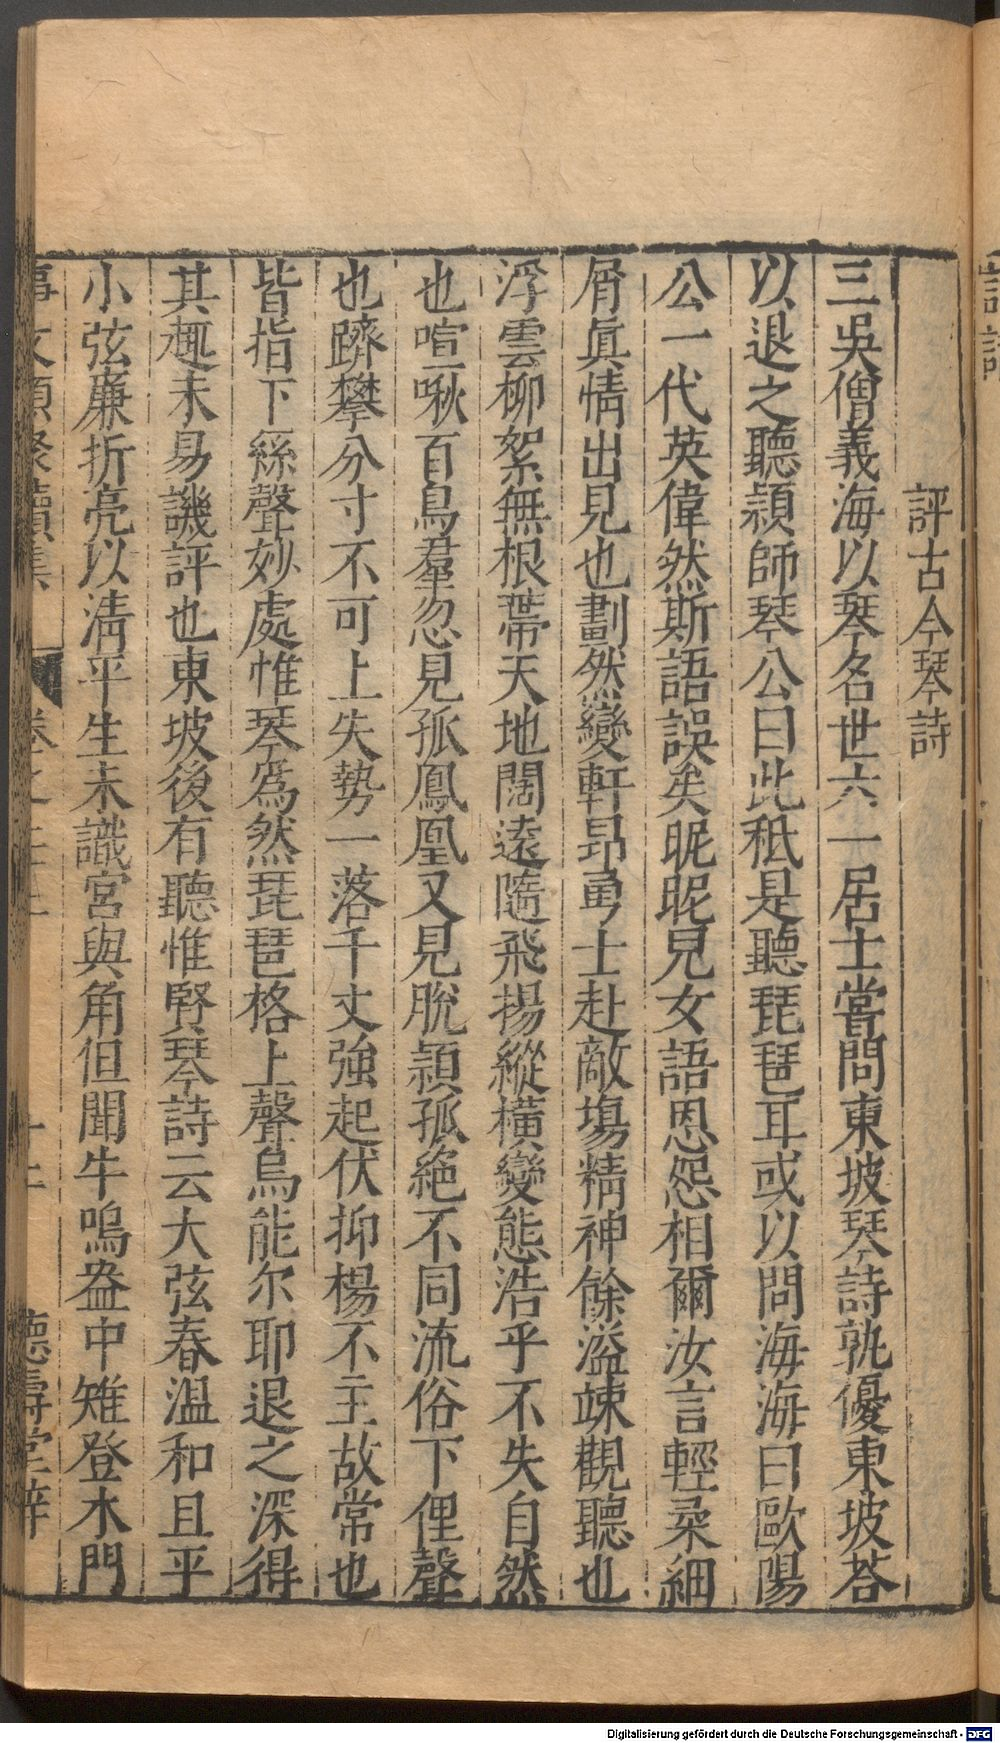 評古今琴詩
三吳僧義海以琴名世六一居士嘗問東坡琴詩孰優東坡荅
以退之聽頴師琴公曰此秪是聽琵琶耳或以問海海曰歐陽
公一代英偉然斯語誤矣昵昵兒女語恩怨相爾汝言輕柔細
屑眞情出見也劃然變軒昂勇士赴敵塲精神餘溢竦觀聽也
浮雲柳絮無根蔕天地闊遠隨飛揚縱橫變態浩乎不失自然
也喧啾百鳥羣忽見孤鳳凰又見脫頴孤絶不同流俗下俚聲
也躋攀分寸不可上失勢一落千丈強起伏抑楊不主故常也
皆指下絲聲妙處惟琴爲然琵琶格上聲烏能尔耶退之深得
其趣未易譏評也東坡後有聽惟賢琴詩云大弦春温和且平
小弦廉折亮以淸平生未識宮與角但聞牛鳴盎中雉登木門
事文類聚續集 卷之二十二 十二 德壽堂梓
Digitalisierung gefördert durch die Deutsche Forschungsgemeinschaft - DFG